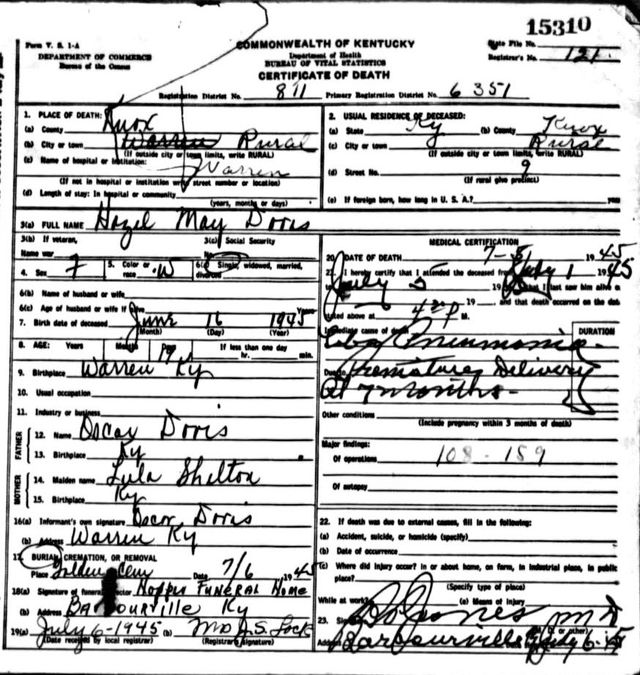 15310
Form V. S. 1-A
COMMONWEALTH OF KENTUCKY
State File No.
DEPARTMENT OF COMMERCE
Bureau of the Census
Department of Health
BUREAU OF VITAL STATISTICS
Registrar's No. 121.
CERTIFICATE OF DEATH
Registration District No. 811 Primary Registration District No. 6351
1. PLACE OF DEATH:
(a) County Knox
(b) City or town Warren Rural
(If outside city or town limits, write RURAL)
(c) Name of hospital or institution: Warren
(If not in hospital or institution write street number or location)
(d) Length of stay: In hospital or community
(years, months or days)
2. USUAL RESIDENCE OF DECEASED:
(a) State Ky (b) County Knox
(c) City or town Rural
(If outside city or town limits, write RURAL)
(d) Street No. 9
(If rural give precinct)
(e) If foreign born, how long in U. S. A.?
3(a) FULL NAME Hazel May Doris
3(b) If veteran,
Name war
3(c) Social Security
4. Sex F
5. Color or race W
6(a) Single, widowed, married, divorced
6(b) Name of husband or wife
6(c) Age of husband or wife if alive Years
7. Birth date of deceased June 16 1945
(Month) (Day) (Year)
8. AGE: Years Months Days 19 If less than one day
hr. min.
9. Birthplace Warren Ky
10. Usual occupation
11. Industry or business
FATHER
12. Name Oscar Doris
13. Birthplace Ky
MOTHER
14. Maiden name Lula Shelton
15. Birthplace Ky
16(a) Informant's own signature Oscar Doris
(b) Address Warren Ky
17. BURIAL, CREMATION, OR REMOVAL
Place Cem Date 7/6 1945
18(a) Signature of funeral director Hopper Funeral Home
(b) Address Barbourville Ky
19(a) July 6-1945 (b) J.S. Lock
(Date received by local registrar) (Registrar's signature)
MEDICAL CERTIFICATION
20. DATE OF DEATH 7-5 1945
21. I hereby certify that I attended the deceased from July 1 1945
July 5 19, that I last saw him alive on
19, and that death occurred on the date
stated above at 4 P M.
Immediate cause of death
DURATION
Pneumonia
Due to Premature Delivery
at 7 months
Other conditions
(Include pregnancy within 3 months of death)
Major findings:
Of operations 108-159
Of autopsy
22. If death was due to external causes, fill in the following:
(a) Accident, suicide, or homicide (specify)
(b) Date of occurrence
(c) Where did injury occur? In or about home, on farm, in industrial place, in public
place?
(Specify type of place)
While at work? (e) Means of injury
23. Jones M D
Address Barbourville July 6-45